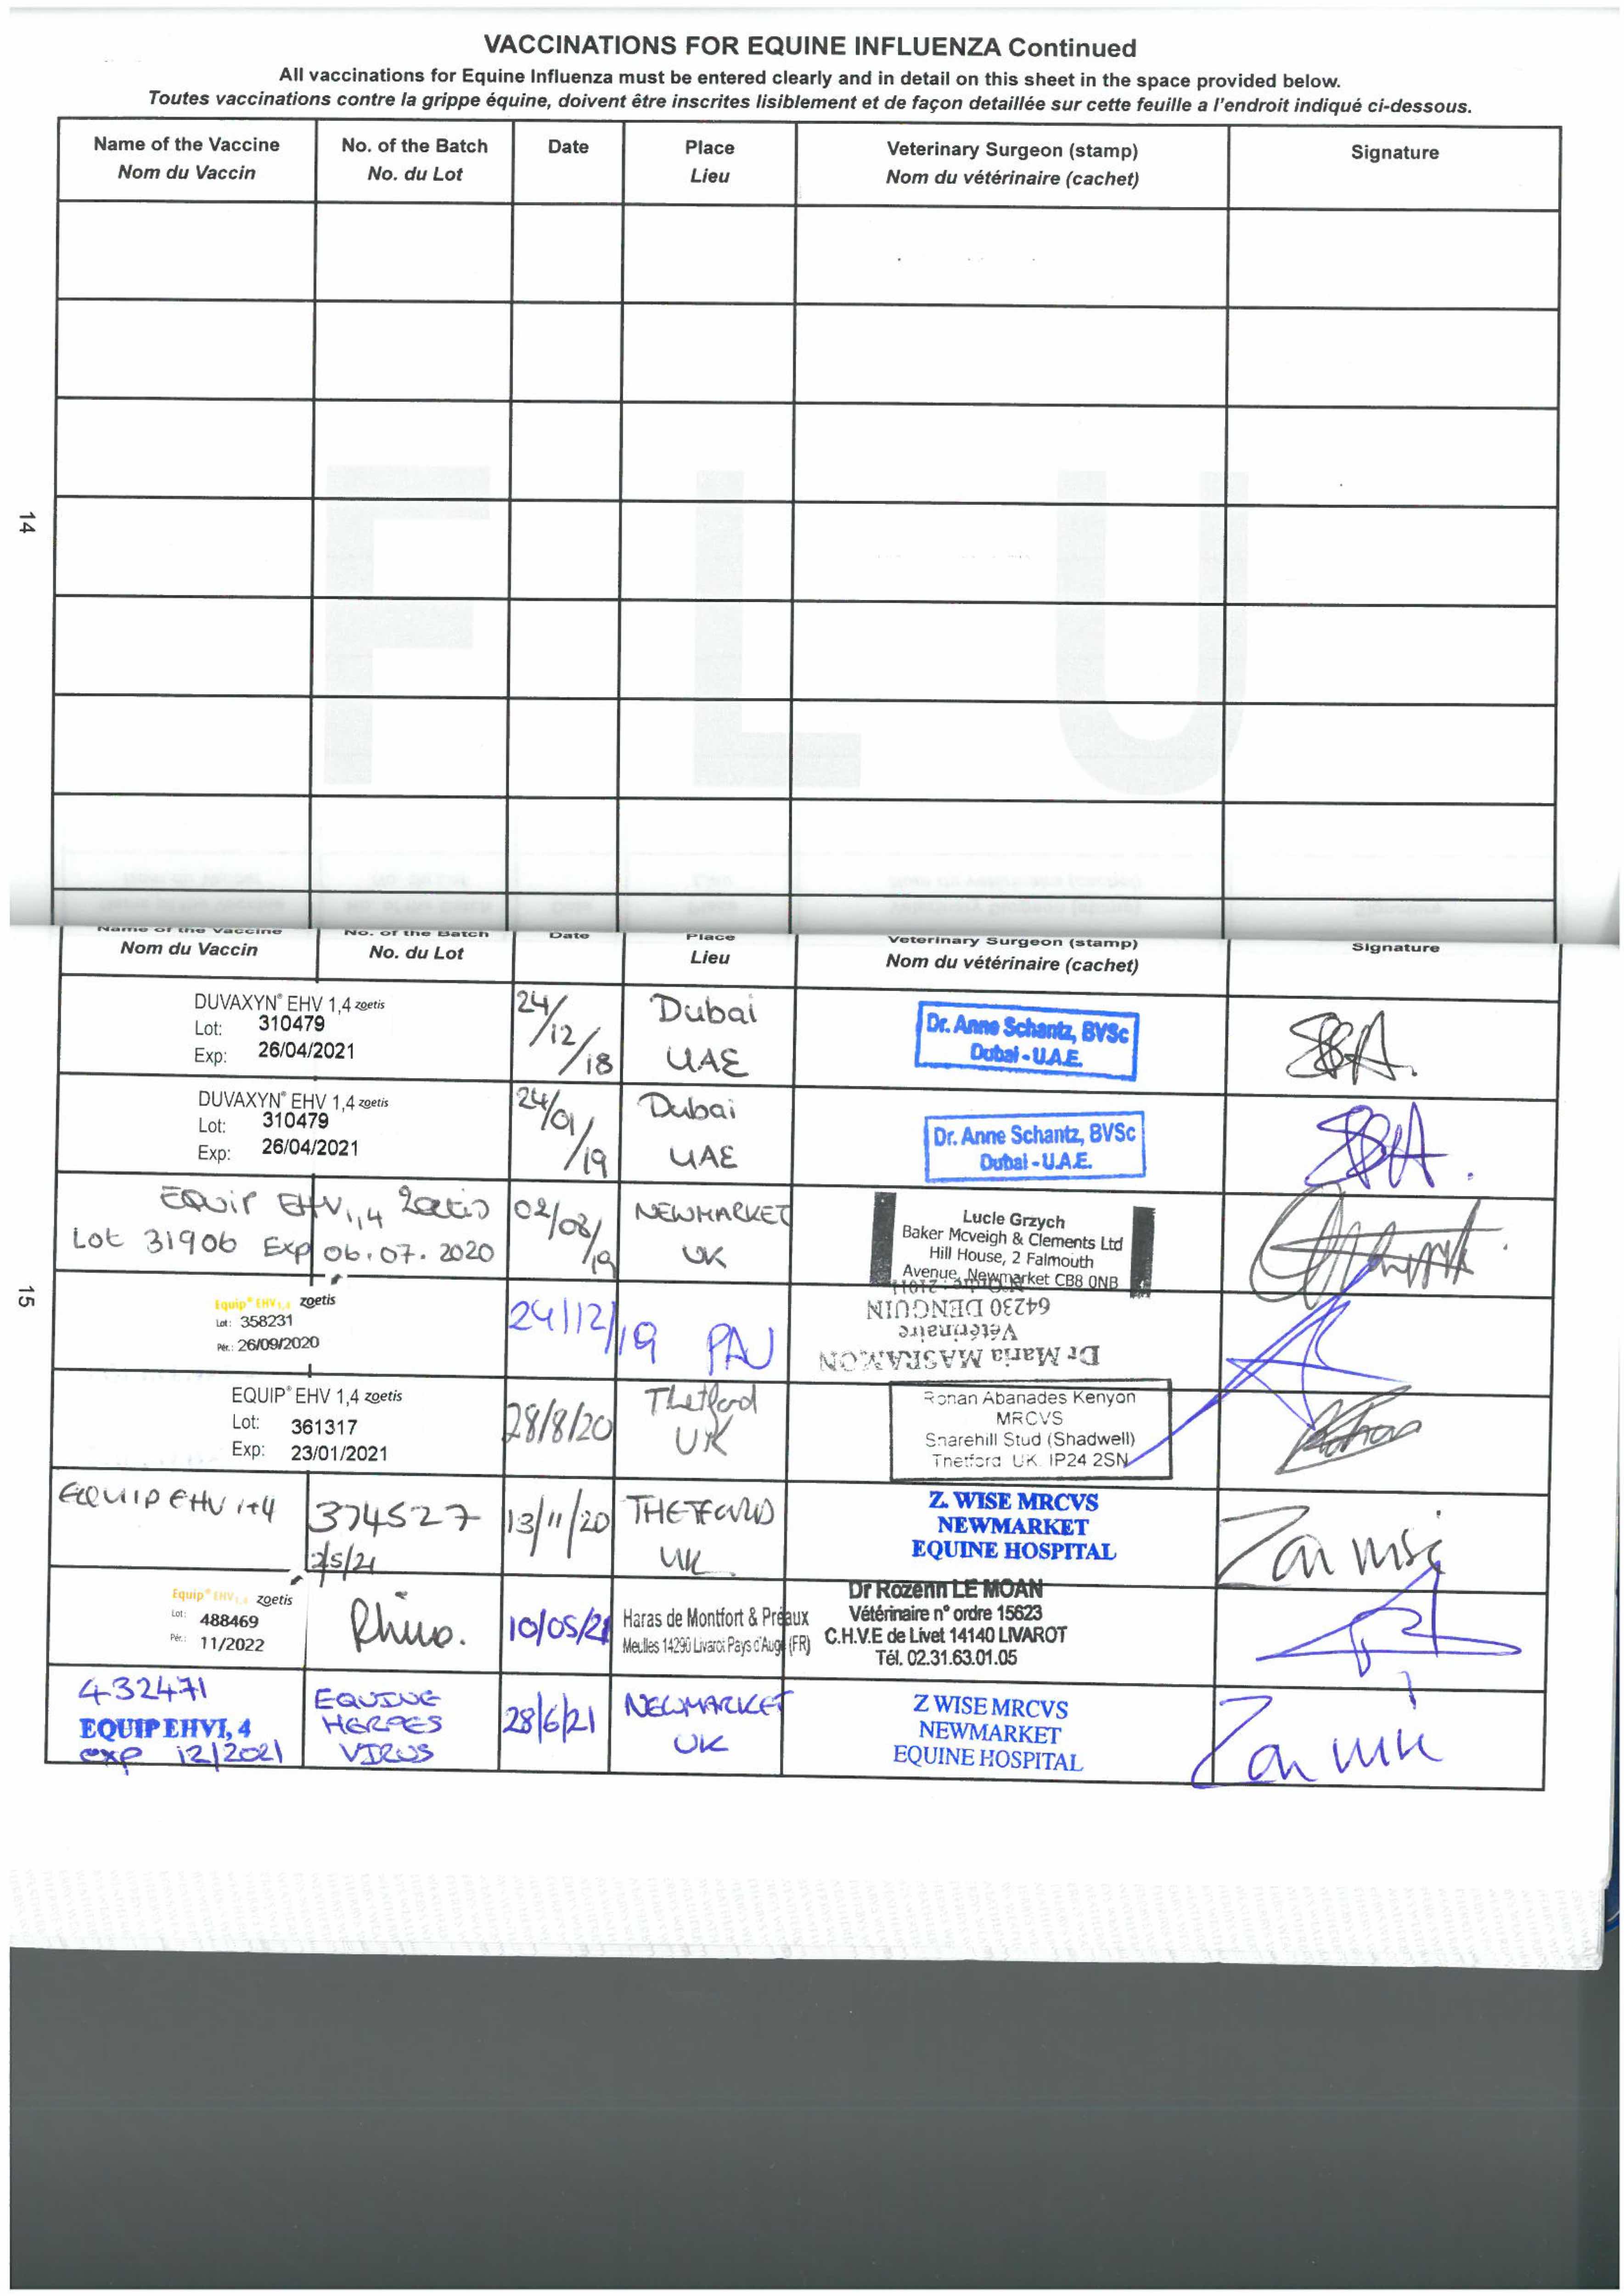 VACCINATIONS FOR EQUINE INFLUENZA Continued
All vaccinations for Equine Influenza must be entered clearly and in detail on this sheet in the space provided below.
Toutes vaccinations contre la grippe équine, doivent être inscrites lisiblement et de façon detaillée sur cette feuille a l'endroit indiqué ci-dessous.
Name of the Vaccine No. of the Batch Date Place Veterinary Surgeon (stamp) Signature
Nom du Vaccin No. du Lot Lieu Nom du vétérinaire (cachet)
FLU
14
Name of the Vaccine No. of the Batch Date Place Veterinary Surgeon (stamp) Signature
Nom du Vaccin No. du Lot Lieu Nom du vétérinaire (cachet)
DUVAXYN® EHV 1,4 zoetis
Lot: 310479
Exp: 26/04/2021
24/12/18
Dubai
UAE
Dr. Anne Schantz, BVSc
Dubai - U.A.E.
DUVAXYN® EHV 1,4 zoetis
Lot: 310479
Exp: 26/04/2021
24/01/19
Dubai
UAE
Dr. Anne Schantz, BVSc
Dubai - U.A.E.
EQUIP EHV1,4 zoetis
Lot 31906 Exp 06.07.2020
02/08/19
NEWMARKET
UK
Lucie Grzych
Baker Mcveigh & Clements Ltd
Hill House, 2 Falmouth
Avenue, Newmarket CB8 0NB
15
Equip® EHV1,4 zoetis
Lot: 358231
Pér.: 26/09/2020
24/12/19
PAU
Dr Maria MASRAMON
Vétérinaire
64230 DENGUIN
EQUIP® EHV 1,4 zoetis
Lot: 361317
Exp: 23/01/2021
28/8/20
Thetford
UK
Ronan Abanades Kenyon
MRCVS
Snarehill Stud (Shadwell)
Thetford UK. IP24 2SN
EQUIP EHV 1+4
374527
2/5/21
13/11/20
THETFORD
UK
Z. WISE MRCVS
NEWMARKET
EQUINE HOSPITAL
Equip® EHV1,4 zoetis
Lot: 488469
Pér.: 11/2022
Rhino.
10/05/21
Haras de Montfort & Préaux
Meulles 14290 Livarot Pays d'Auge (FR)
Dr Rozenn LE MOAN
Vétérinaire n° ordre 15623
C.H.V.E de Livet 14140 LIVAROT
Tél. 02.31.63.01.05
432471
EQUIP EHV1, 4
exp 12/2021
EQUINE
HERPES
VIRUS
28/6/21
NEWMARKET
UK
Z WISE MRCVS
NEWMARKET
EQUINE HOSPITAL